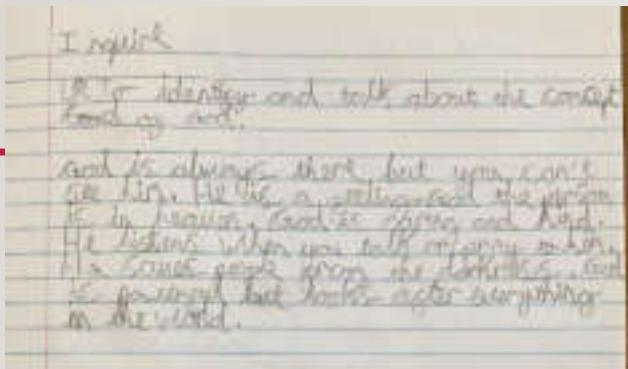 I
LO To identify and talk about the concept
of God.
God is always there but you can't
see him. He is a and the person
is in heaven, God is caring and kind.
He listens when you talk or pray to him.
He saves people from the darkness. God
is powerful but looks after everything
in the world.